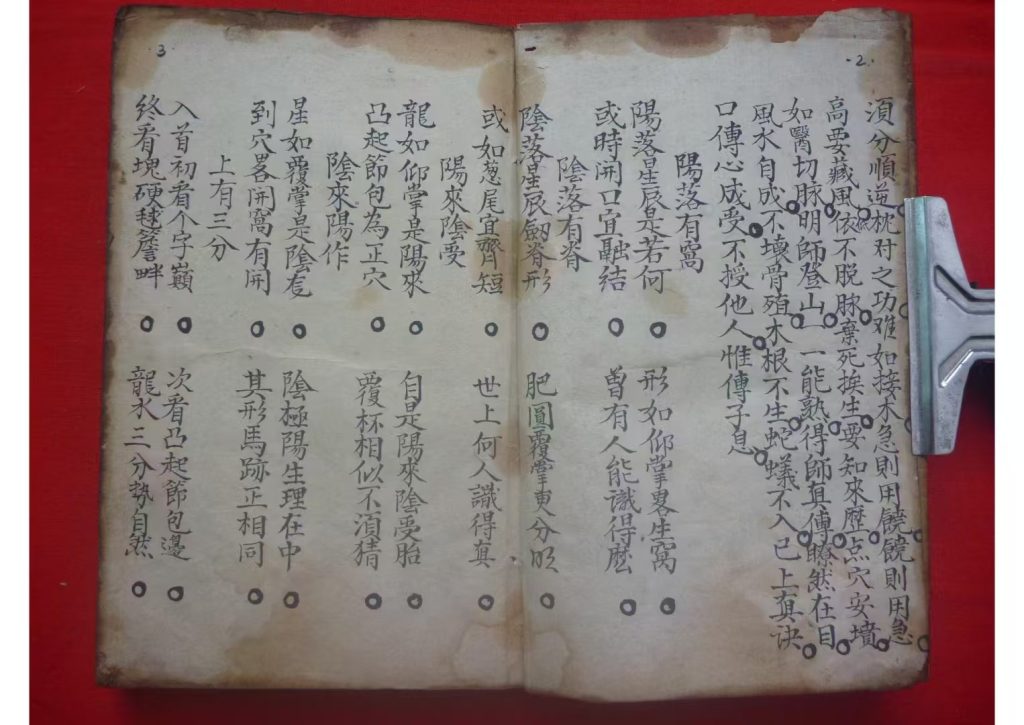 2
須分順逆枕对之功难如接木急則用饒饒則用急
高要藏風依不脱脉棄死挨生要知來歷点穴安墳
如醫切脉明師登山一能熟得師真傳瞭然在目
風水自成不壞骨殖木根不生蛇蟻不入已上真诀
口傳心成受不授他人惟傳子息
陽落有窩
陽落星辰是若何 形如仰掌畧生窩
或時開口宜融結 曽有人能識得麽
陰落有脊
陰落星辰劔脊形 肥圓覆掌更分明
3
或如葱尾宜齊短 世上何人識得真
陽來陰受
龍如仰掌是陽來 自是陽來陰受胎
凸起節包為正穴 覆杯相似不須猜
陰來陽作
星如覆掌是陰龍 陰極陽生理在中
到穴畧開窩有開 其形馬跡正相同
上有三分
入首初看个字巔 次看凸起節包邊
終看塊硬毬簷畔 龍水三分勢自然